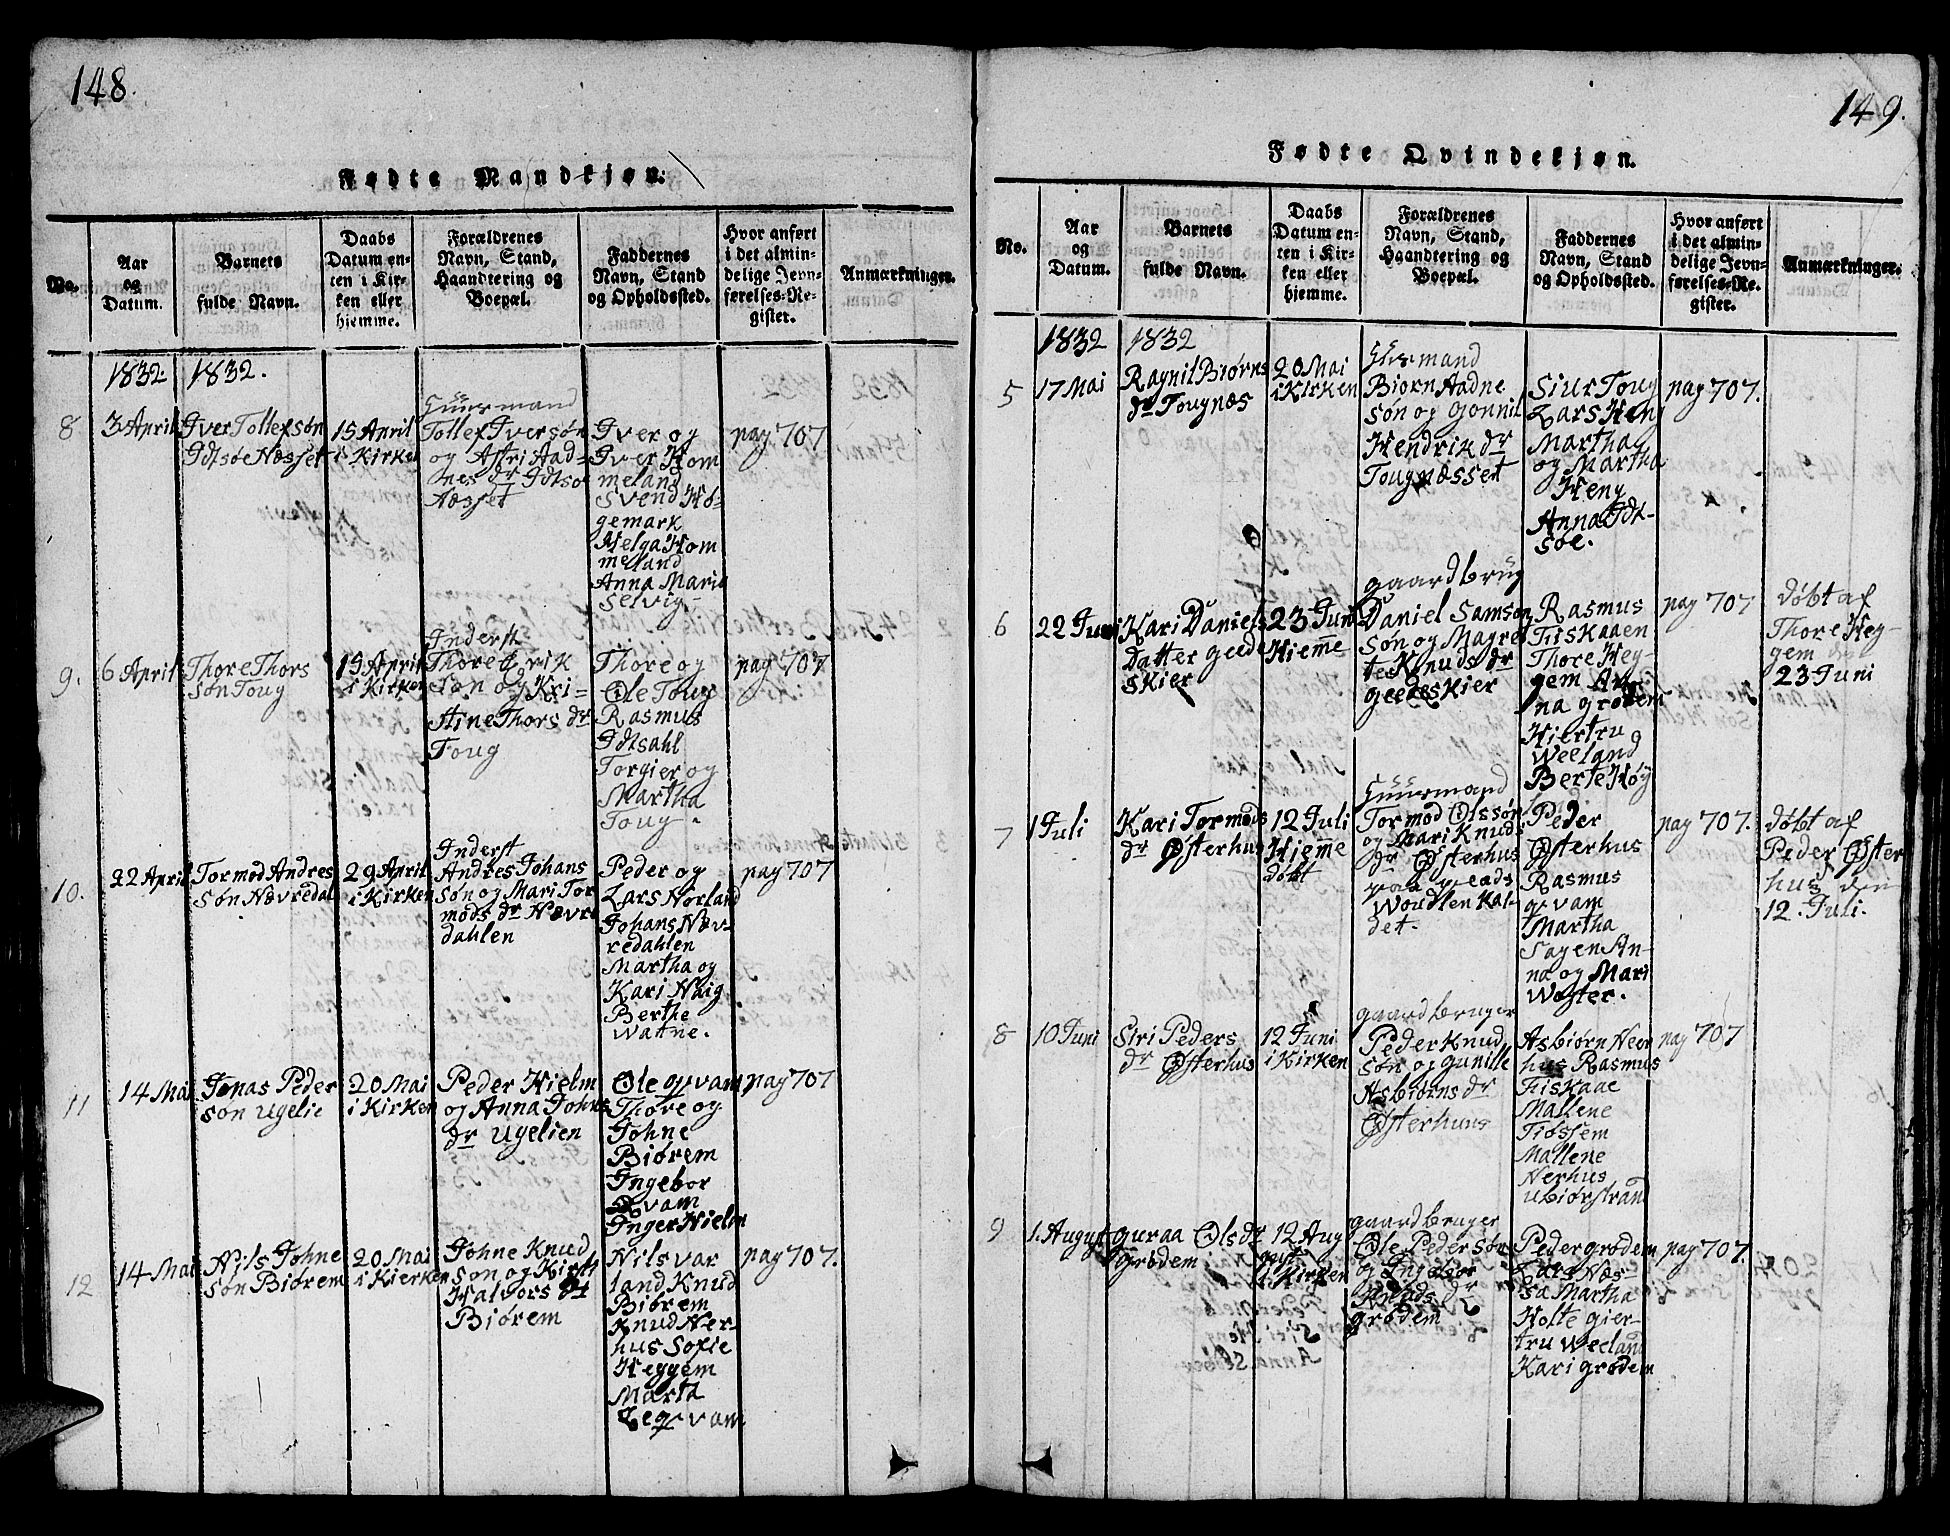 148.
Fødte Mandkjøn:
No.
Aar
og
Datum.
Barnets
fulde Navn.
Daabs
Datum en-
ten i Kir-
ken eller
hjemme.
Forældrenes
Navn, Stand,
Haandtering og
Boepæl.
Faddernes
Navn, Stand
og Opholdssted.
Hvor anført
i det almin-
delige Jevn-
førelses-Re-
gister.
Anmærkninger.
1832.
1832.
8
3 April
Iver Tollefsøn
Idtsøe Næsset
15 April
i Kirken
Huusmand
Tollef Iversøn
og Astri Aad-
nes dr Idtsø
Næsset
Iver og
Iver Hom
meland
Svend Hø-
gemark
Helga Hom
meland
Anna Maria
Selvig
pag 707
9.
6 April
Thore Thors
søn Toug
15 April
i Kirken
Inderst
Thore Erik
søn og Kri-
stine Thors dr
Toug
Thore og
Ole Toug
Rasmus
Idtsahl
Torgier og
Martha
Toug.
pag 707
10.
22 April
Tormod Andres
søn Nævredal
29 April
i Kirken
Inderst
Andres Johans
søn og Mari Tor
mods dr Nævre
dahlen
Peder og
Lars Norland
Johans Næv-
redahlen
Martha og
Kari Haig
Berthe
Watne.
pag 707
11
14 Mai
Jonas Peder
søn Ugelie
20 Mai
i Kirken
Peder Hielm
og Anna Johns
dr Ugelien
Ole Qvam
Thore og
Johne
Biørem
Ingebor
Qvam
Inger Hielm
pag 707
12
14 Mai
Nils Johne
søn Biørem
20 Mai
i Kierken
Johne Knud
søn og Kirsti
Halvors dr
Biørem
Nils var
land Knud
Biørem
Knud Ner-
hus Sofie
Heggem
Marta
Qvam
pag 707.
149.
Fødte Qvindekjøn.
No.
Aar
og
Datum.
Barnets
fulde Navn.
Daabs
Datum en-
ten i Kir-
ken eller
hjemme.
Forældrenes
Navn, Stand,
Haandtering og
Boepæl.
Faddernes
Navn, Stand
og Opholdssted.
Hvor anført
i det almin-
delige Jevn-
førelses-Re-
gister.
Anmærkninger.
1832
1832
5
17 Mai
Ragnil Biørns
dr Tougnæs
20 Mai
i Kirken
Huusmand
Biørn Aadne
søn og Gonnil
Hendrik dr
Tougnæsset
Siur Toug
Lars Heng
Martha
og Martha
Heng
Anna Idt-
søe.
pag 707.
6
22 Juni
Kari Daniels
Datter Geede
skier
23 Juni
Hiemme
gaardbrug
Daniel Samson
søn og Magre
te Knuds dr
Geedeskier
Rasmus
Fiskaaen
Thore Heg-
gem An
na Grødem
Hiertru
Weeland
Berte Høy
pag 707
døbt af
Thore Heg-
gem den
23 Juni
7
1 Juli
Kari Tormods
dr Østerhus
12 Juli
Hieme
døbt
Huusmand
Tormod Olssøn
og Mari Knuds
dr Østerhus
paa Plads
Woudlen Kal-
det.
Peder
Østerhus
Rasmus
Qvam
Martha
Sagen An-
na og Mari
Woster.
pag 707.
døbt af
Peder Øster
hus den
12. Juli.
8
10 Juni
Siri Peders
dr Østerhus
12 Juni
i Kirken
gaardbruger
Peder Knud
søn og Gunille
Asbiørns dr
Østerhuus
Asbiørn Neer
hus Rasmus
Fiskaae
Mallene
Tiøssem
Mallene
Nerhus
Ubiørstrand
pag 707
9
1. August
Guraa Ols dr
Grødem
12 Aug
gust
i Kirken
gaardbruger
Ole Pedersøn
og Ingebor
Knuds dr
Grødem
Peder Grødem
Lars Næs-
sa Martha
Holte Gier-
tru Weeland
Kari Grødem
pag 707.